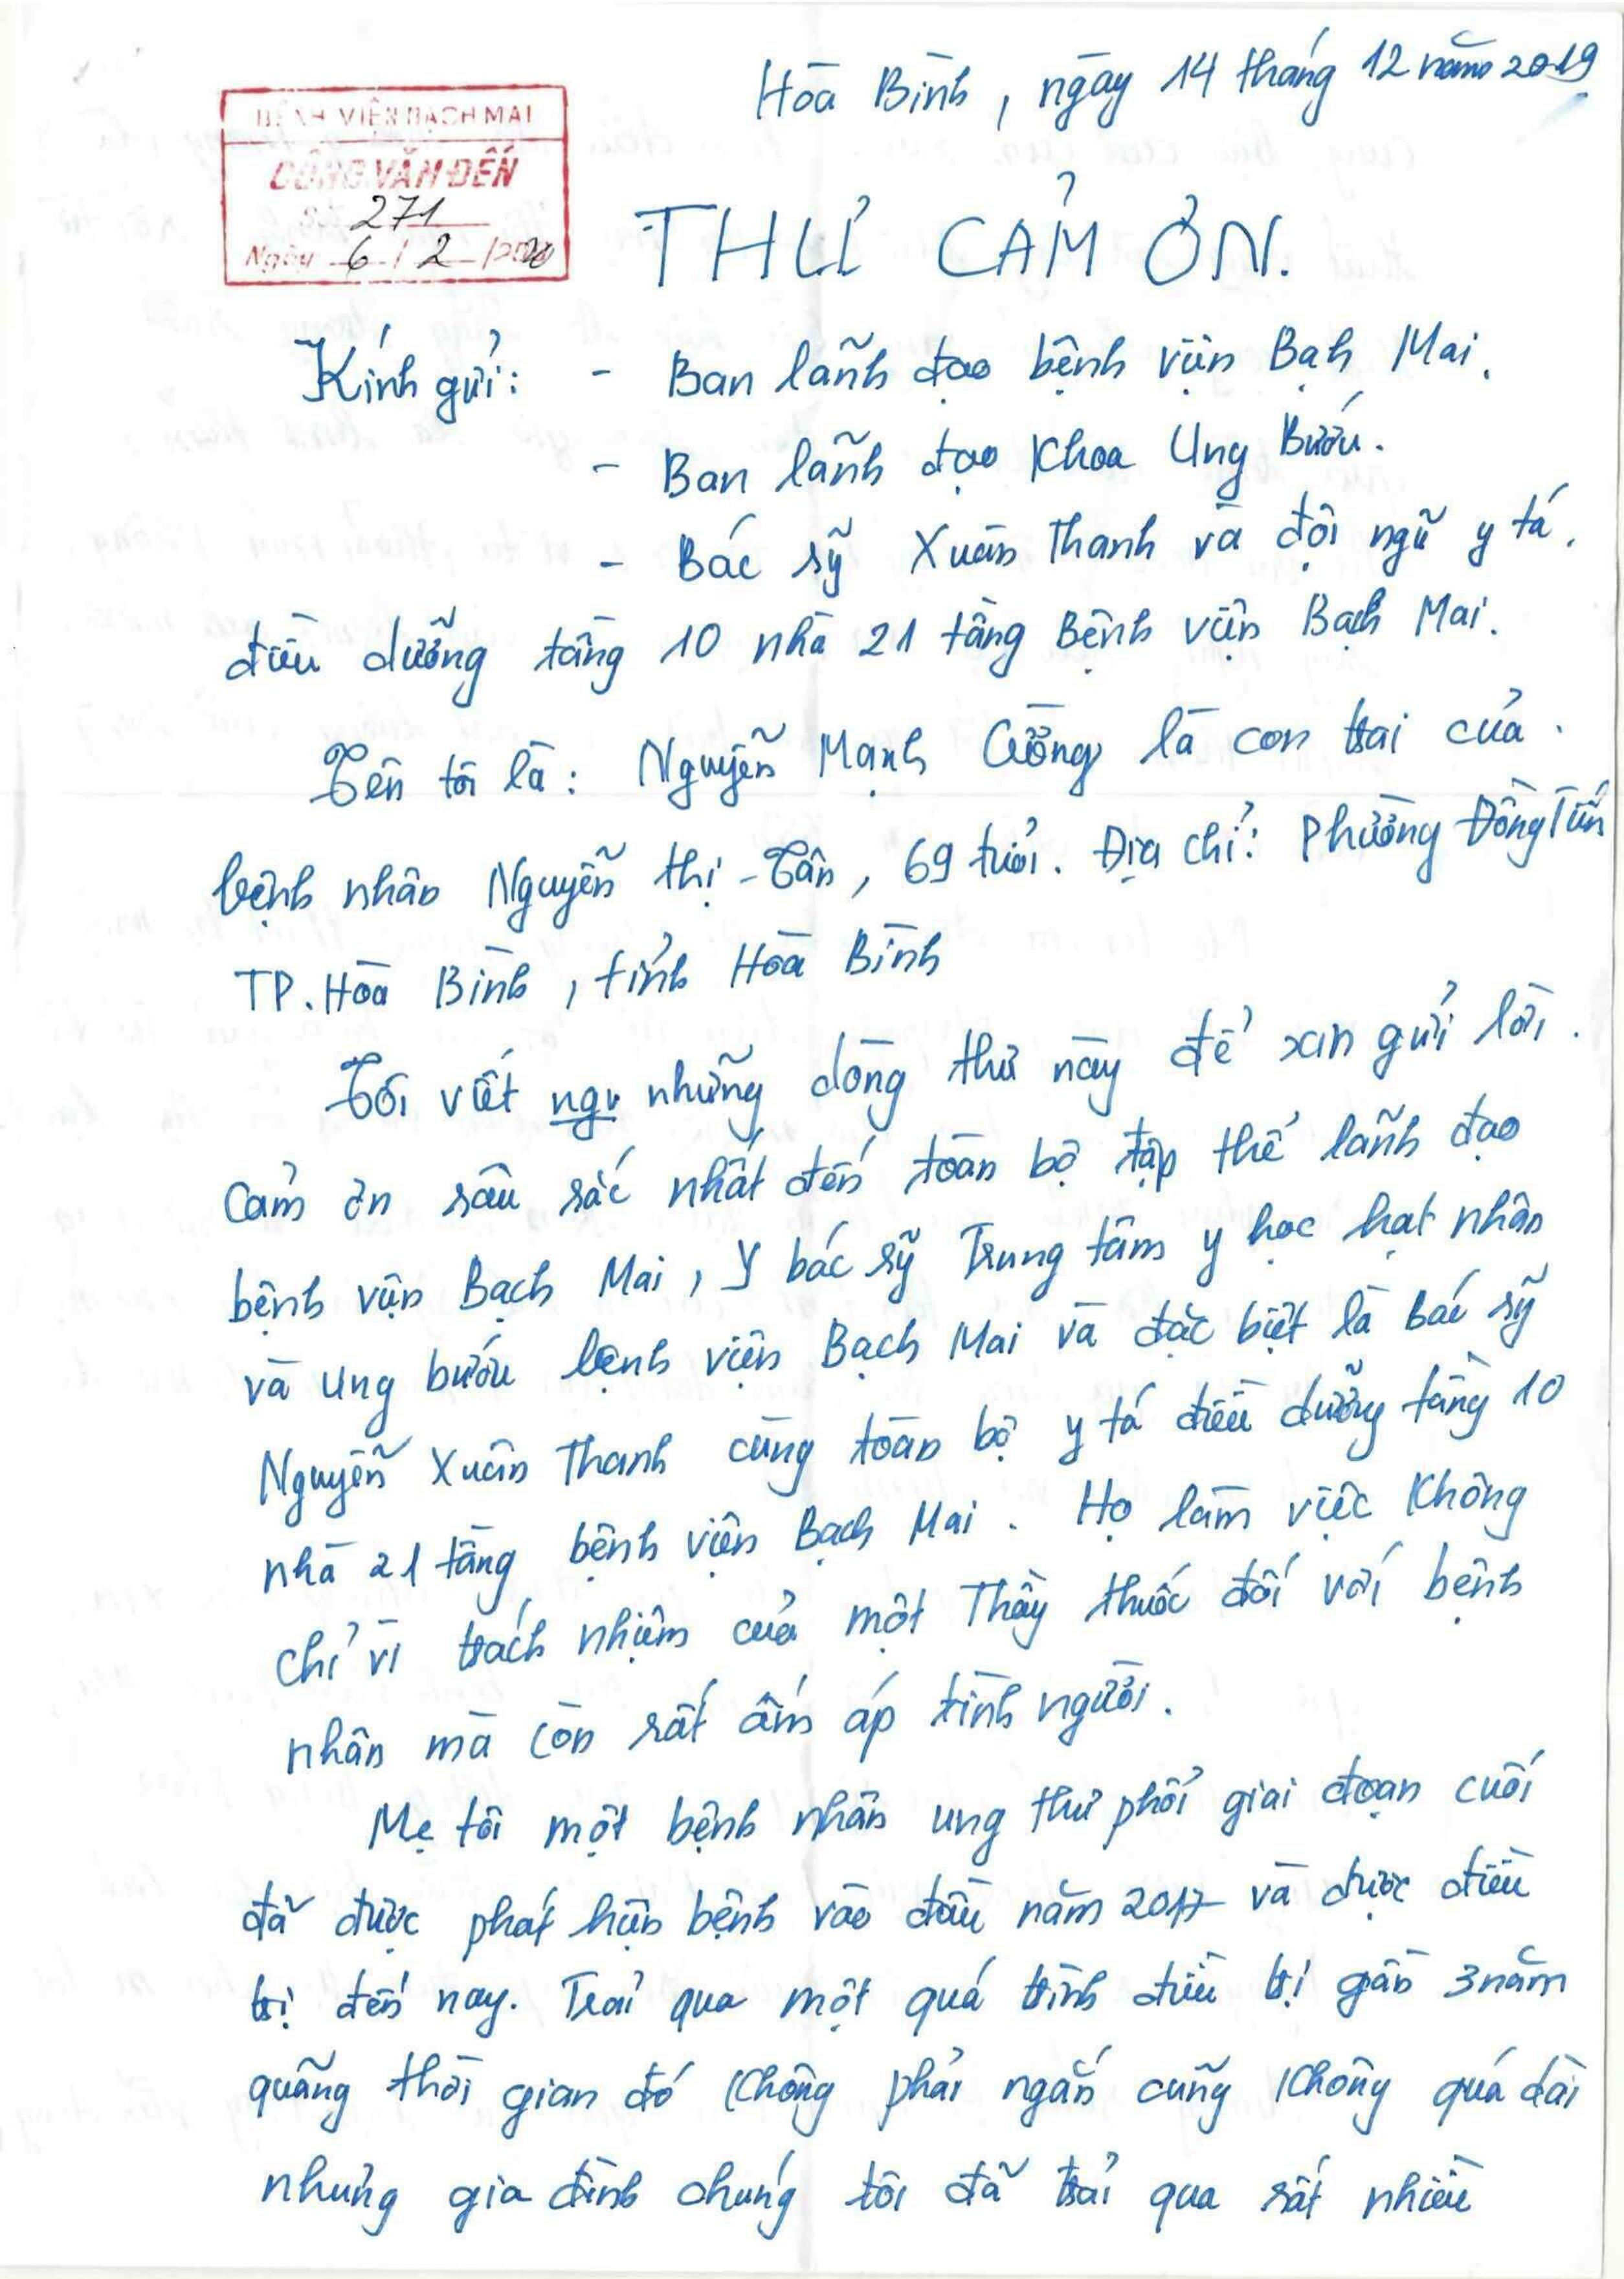 Hòa Bình, ngày 14 tháng 12 năm 2019
BỆNH VIỆN BẠCH MAI
CÔNG VĂN ĐẾN
Số 271
Ngày 6 / 2 /2020
THƯ CẢM ƠN.
Kính gửi: - Ban lãnh đạo bệnh viện Bạch Mai.
- Ban lãnh đạo Khoa Ung Bướu.
- Bác sỹ Xuân Thanh và đội ngũ y tá.
điều dưỡng tầng 10 nhà 21 tầng Bệnh viện Bạch Mai.
Tên tôi là: Nguyễn Mạnh Cường là con trai của.
bệnh nhân Nguyễn thị Tân, 69 tuổi. Địa chỉ: Phường Đồng Tiến
TP. Hòa Bình, tỉnh Hòa Bình
Tôi viết ngu những dòng thư này để xin gửi lời.
cảm ơn sâu sắc nhất đến toàn bộ tập thể lãnh đạo
bệnh viện Bạch Mai, Y bác sỹ Trung tâm y học hạt nhân
và ung bướu bệnh viện Bạch Mai và đặc biệt là Bác sỹ
Nguyễn Xuân Thanh cùng toàn bộ y tá điều dưỡng tầng 10
nhà 21 tầng bệnh viện Bạch Mai. Họ làm việc không
chỉ vì trách nhiệm của một Thầy thuốc đối với bệnh
nhân mà còn rất ấm áp tình người.
Mẹ tôi một bệnh nhân ung thư phổi giai đoạn cuối
đã được phát hiện bệnh vào đầu năm 2017 và được điều
trị đến nay. Trải qua một quá trình điều trị gần 3 năm
quãng thời gian đó không phải ngắn cũng không quá dài
nhưng gia đình chúng tôi đã trải qua rất nhiều